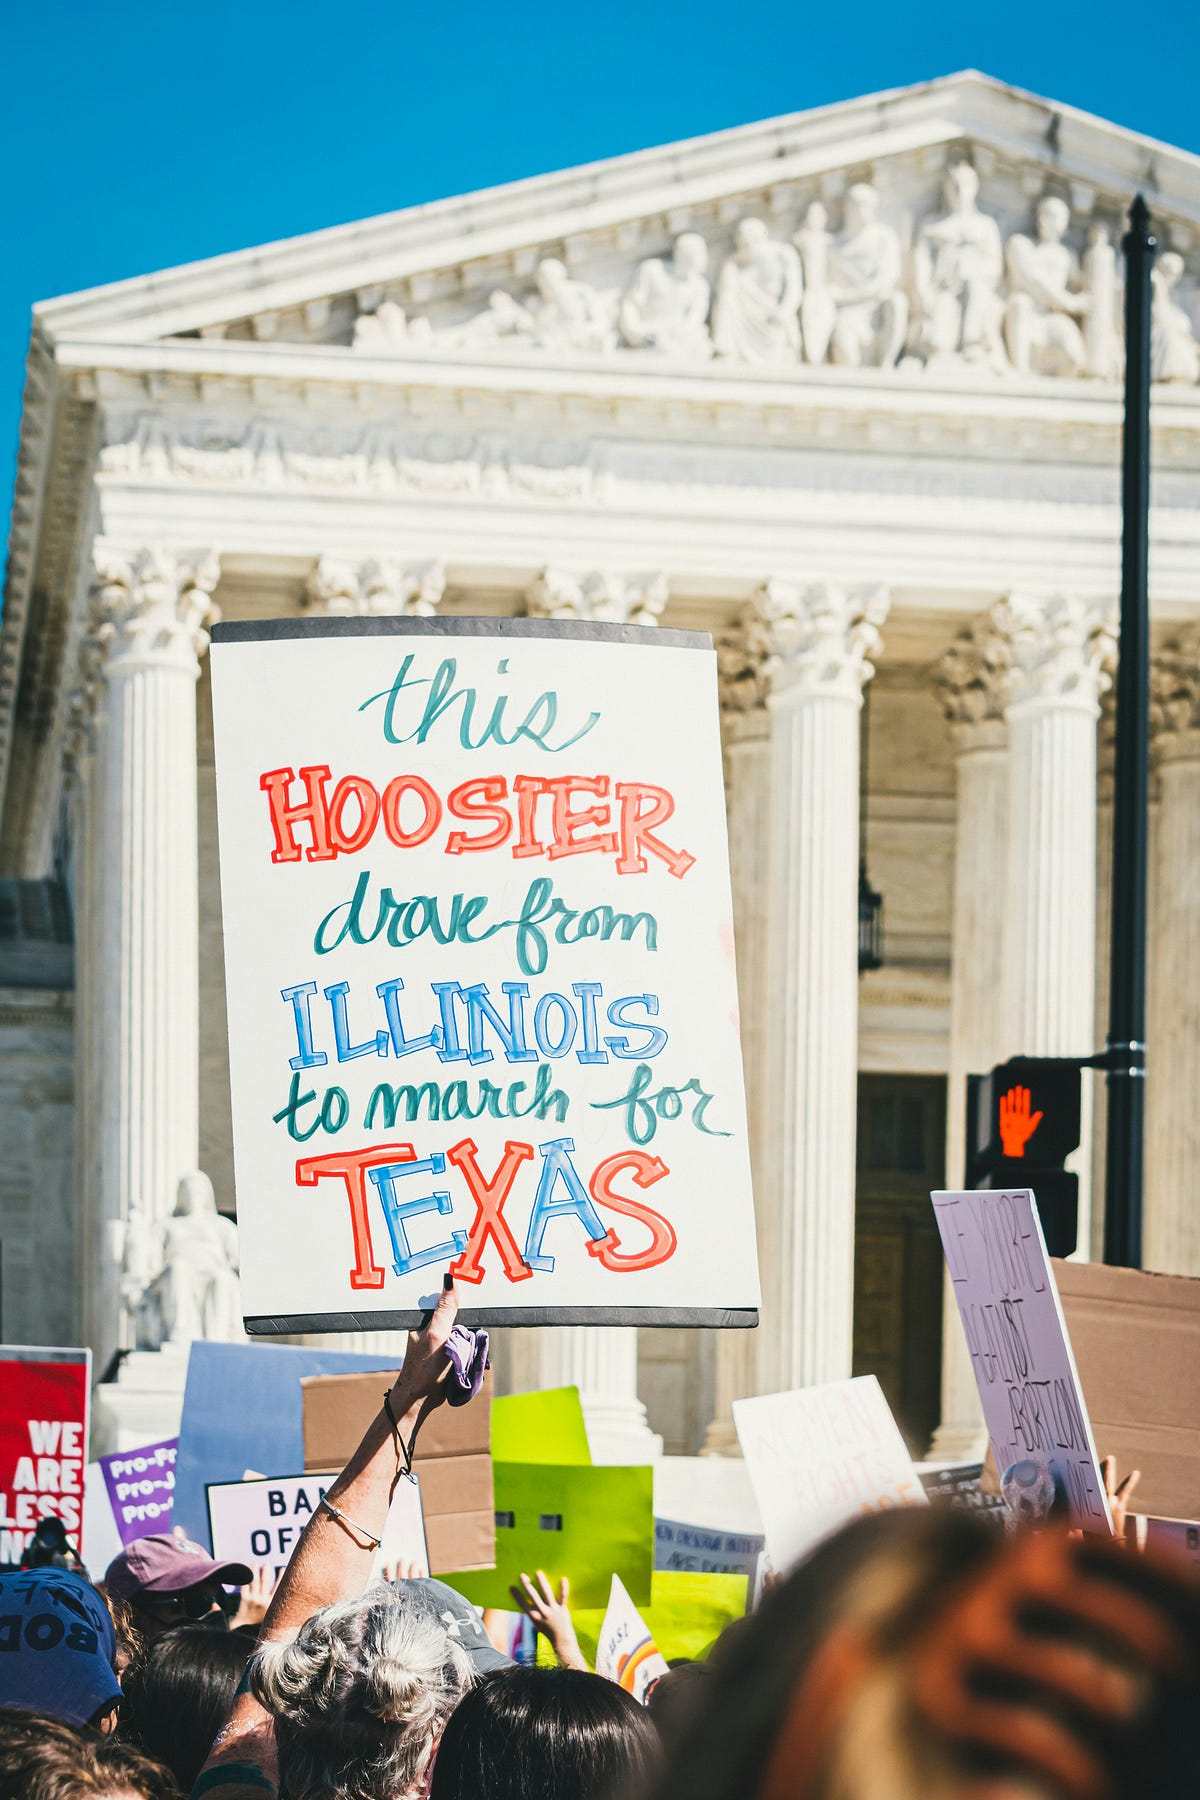 this
HOOSIER
drove from
ILLINOIS
to march for
TEXAS
WE
ARE
LESS
Pro-
Pro-
Pro-
BAN
OFF
IF YOU'RE
AGAINST
ABORTION
WOMEN
RIGHTS
ARE
BOD
just